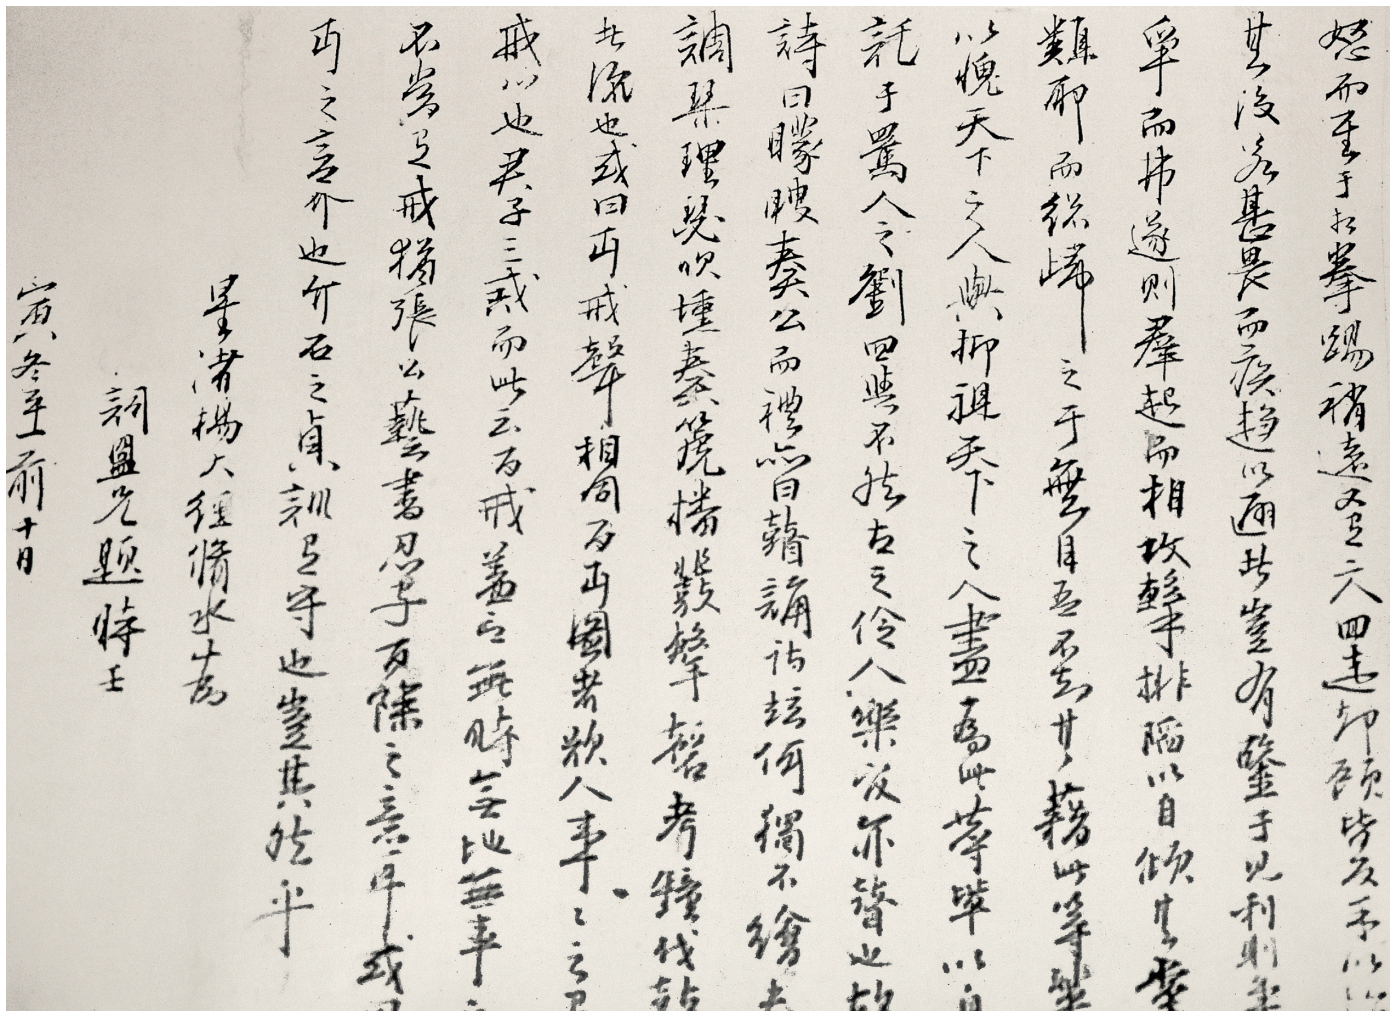 怒而至于相拳踢稍遠又有六人四走卻顧皆反手以
其後若甚畏而疾趨以避此豈有鑒于見利則
爭而拂遂則群起而相攻擊排陷以自傾其
類耶而總歸之于無目吾不知其藉此等
以愧天下之人與抑詛天下之人盡為此等舉以自
託于罵人之劉四與不然古之伶人樂官亦瞽也故
詩曰矇瞍奏公而禮亦曰瞽誦詁茲何獨不繪夫
調琴理瑟吹壎奏篪播鼗擊磬考鐘伐鼓
此流也或曰丏戒聲相同百丏圖者欲人事之云
戒以也君子三戒而此云百戒蓋言無時無地無事
不當有戒猶張公藝書忍字百餘之意耳或
丏之言介也介石之貞以訓有守也豈其然乎
星渚楊大經脩水甫
詞盟兄題時壬
寅冬至前十日